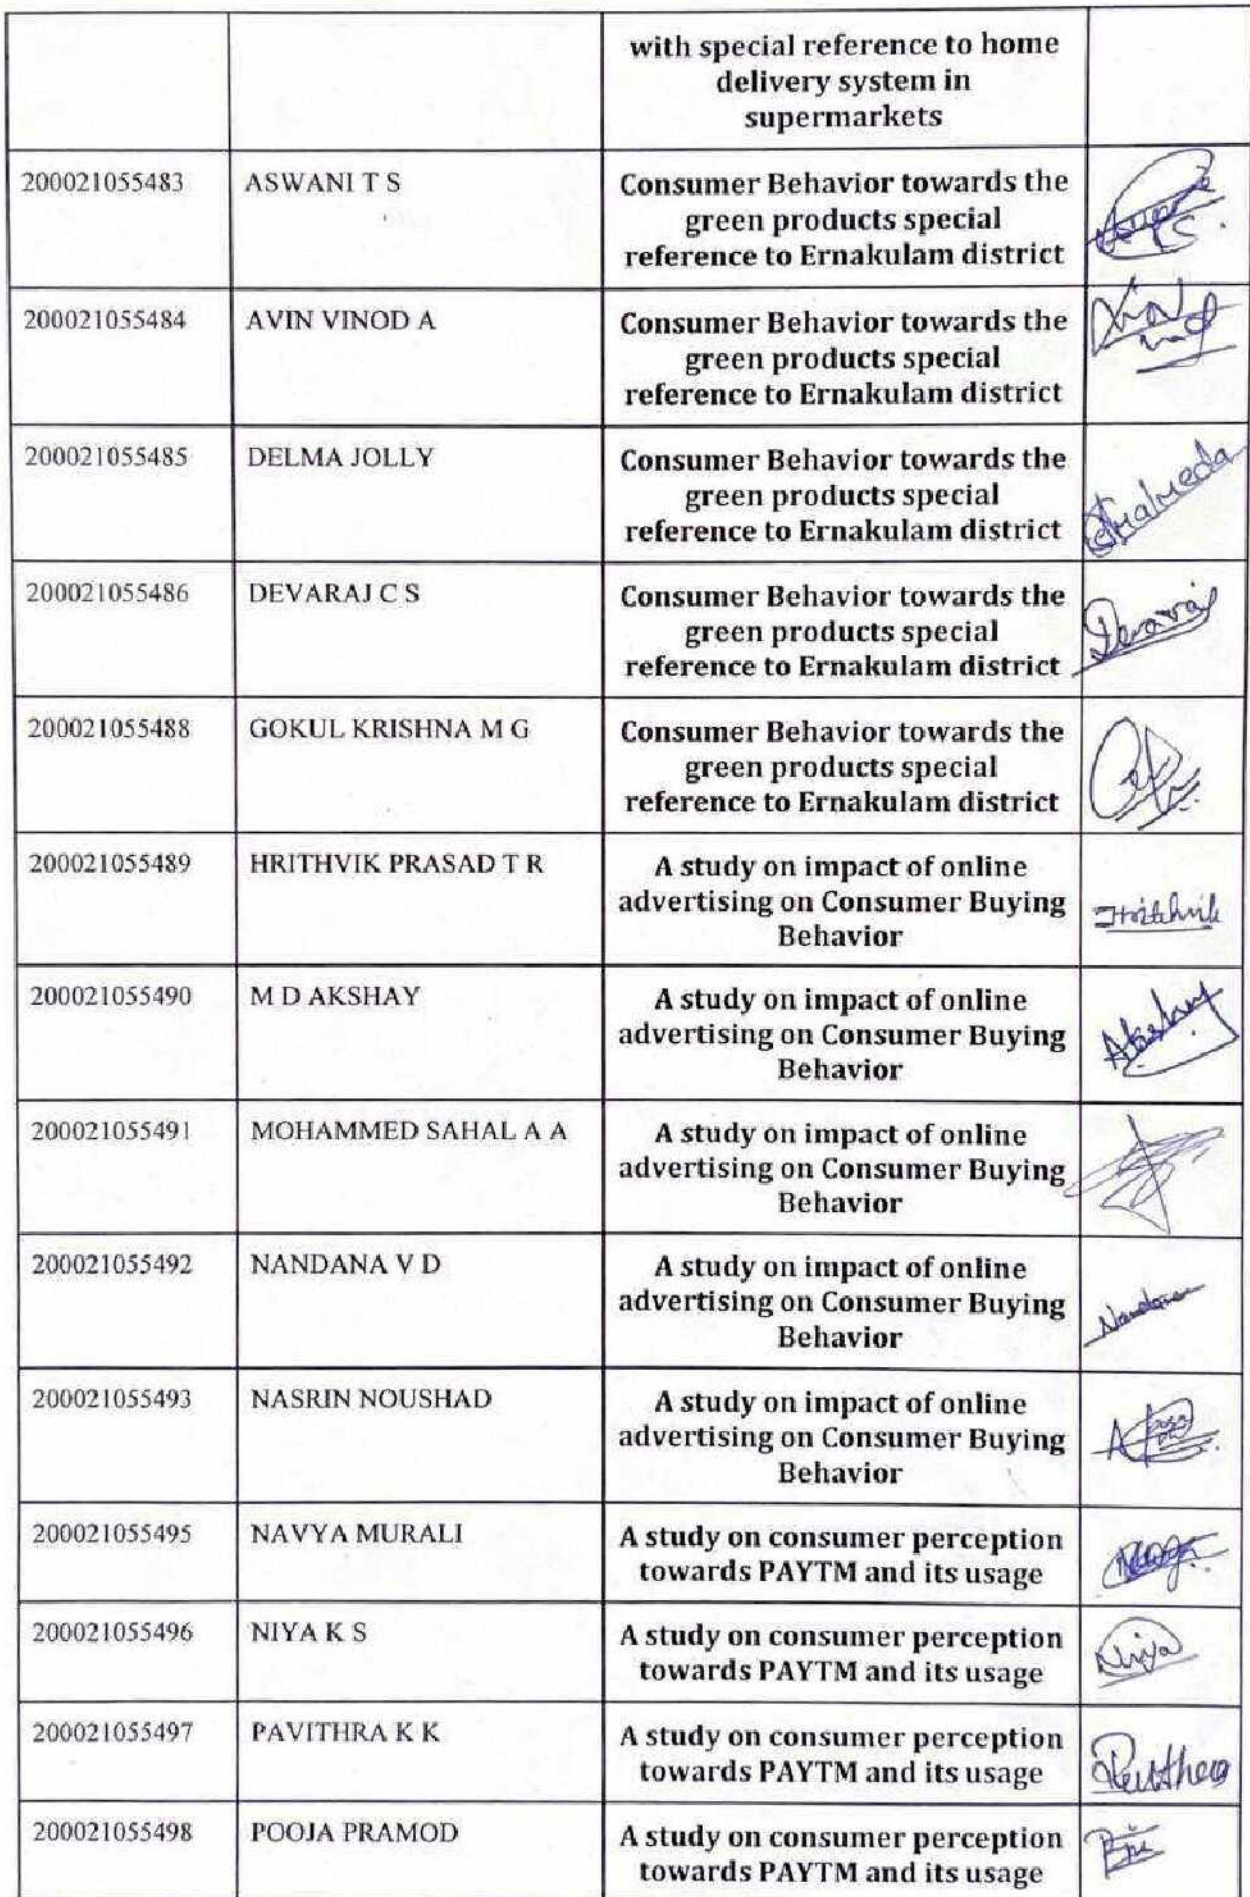 with special reference to home
delivery system in
supermarkets
200021055483 ASWANI T S Consumer Behavior towards the
green products special
reference to Ernakulam district
200021055484 AVIN VINOD A Consumer Behavior towards the
green products special
reference to Ernakulam district
200021055485 DELMA JOLLY Consumer Behavior towards the
green products special
reference to Ernakulam district
200021055486 DEVARAJ C S Consumer Behavior towards the
green products special
reference to Ernakulam district
Devaraj
200021055488 GOKUL KRISHNA M G Consumer Behavior towards the
green products special
reference to Ernakulam district
200021055489 HRITHVIK PRASAD T R A study on impact of online
advertising on Consumer Buying
Behavior
Hrithvik
200021055490 M D AKSHAY A study on impact of online
advertising on Consumer Buying
Behavior
Akshay
200021055491 MOHAMMED SAHAL A A A study on impact of online
advertising on Consumer Buying
Behavior
200021055492 NANDANA V D A study on impact of online
advertising on Consumer Buying
Behavior
Nandana
200021055493 NASRIN NOUSHAD A study on impact of online
advertising on Consumer Buying
Behavior
200021055495 NAVYA MURALI A study on consumer perception
towards PAYTM and its usage
200021055496 NIYA K S A study on consumer perception
towards PAYTM and its usage
Niya
200021055497 PAVITHRA K K A study on consumer perception
towards PAYTM and its usage
200021055498 POOJA PRAMOD A study on consumer perception
towards PAYTM and its usage